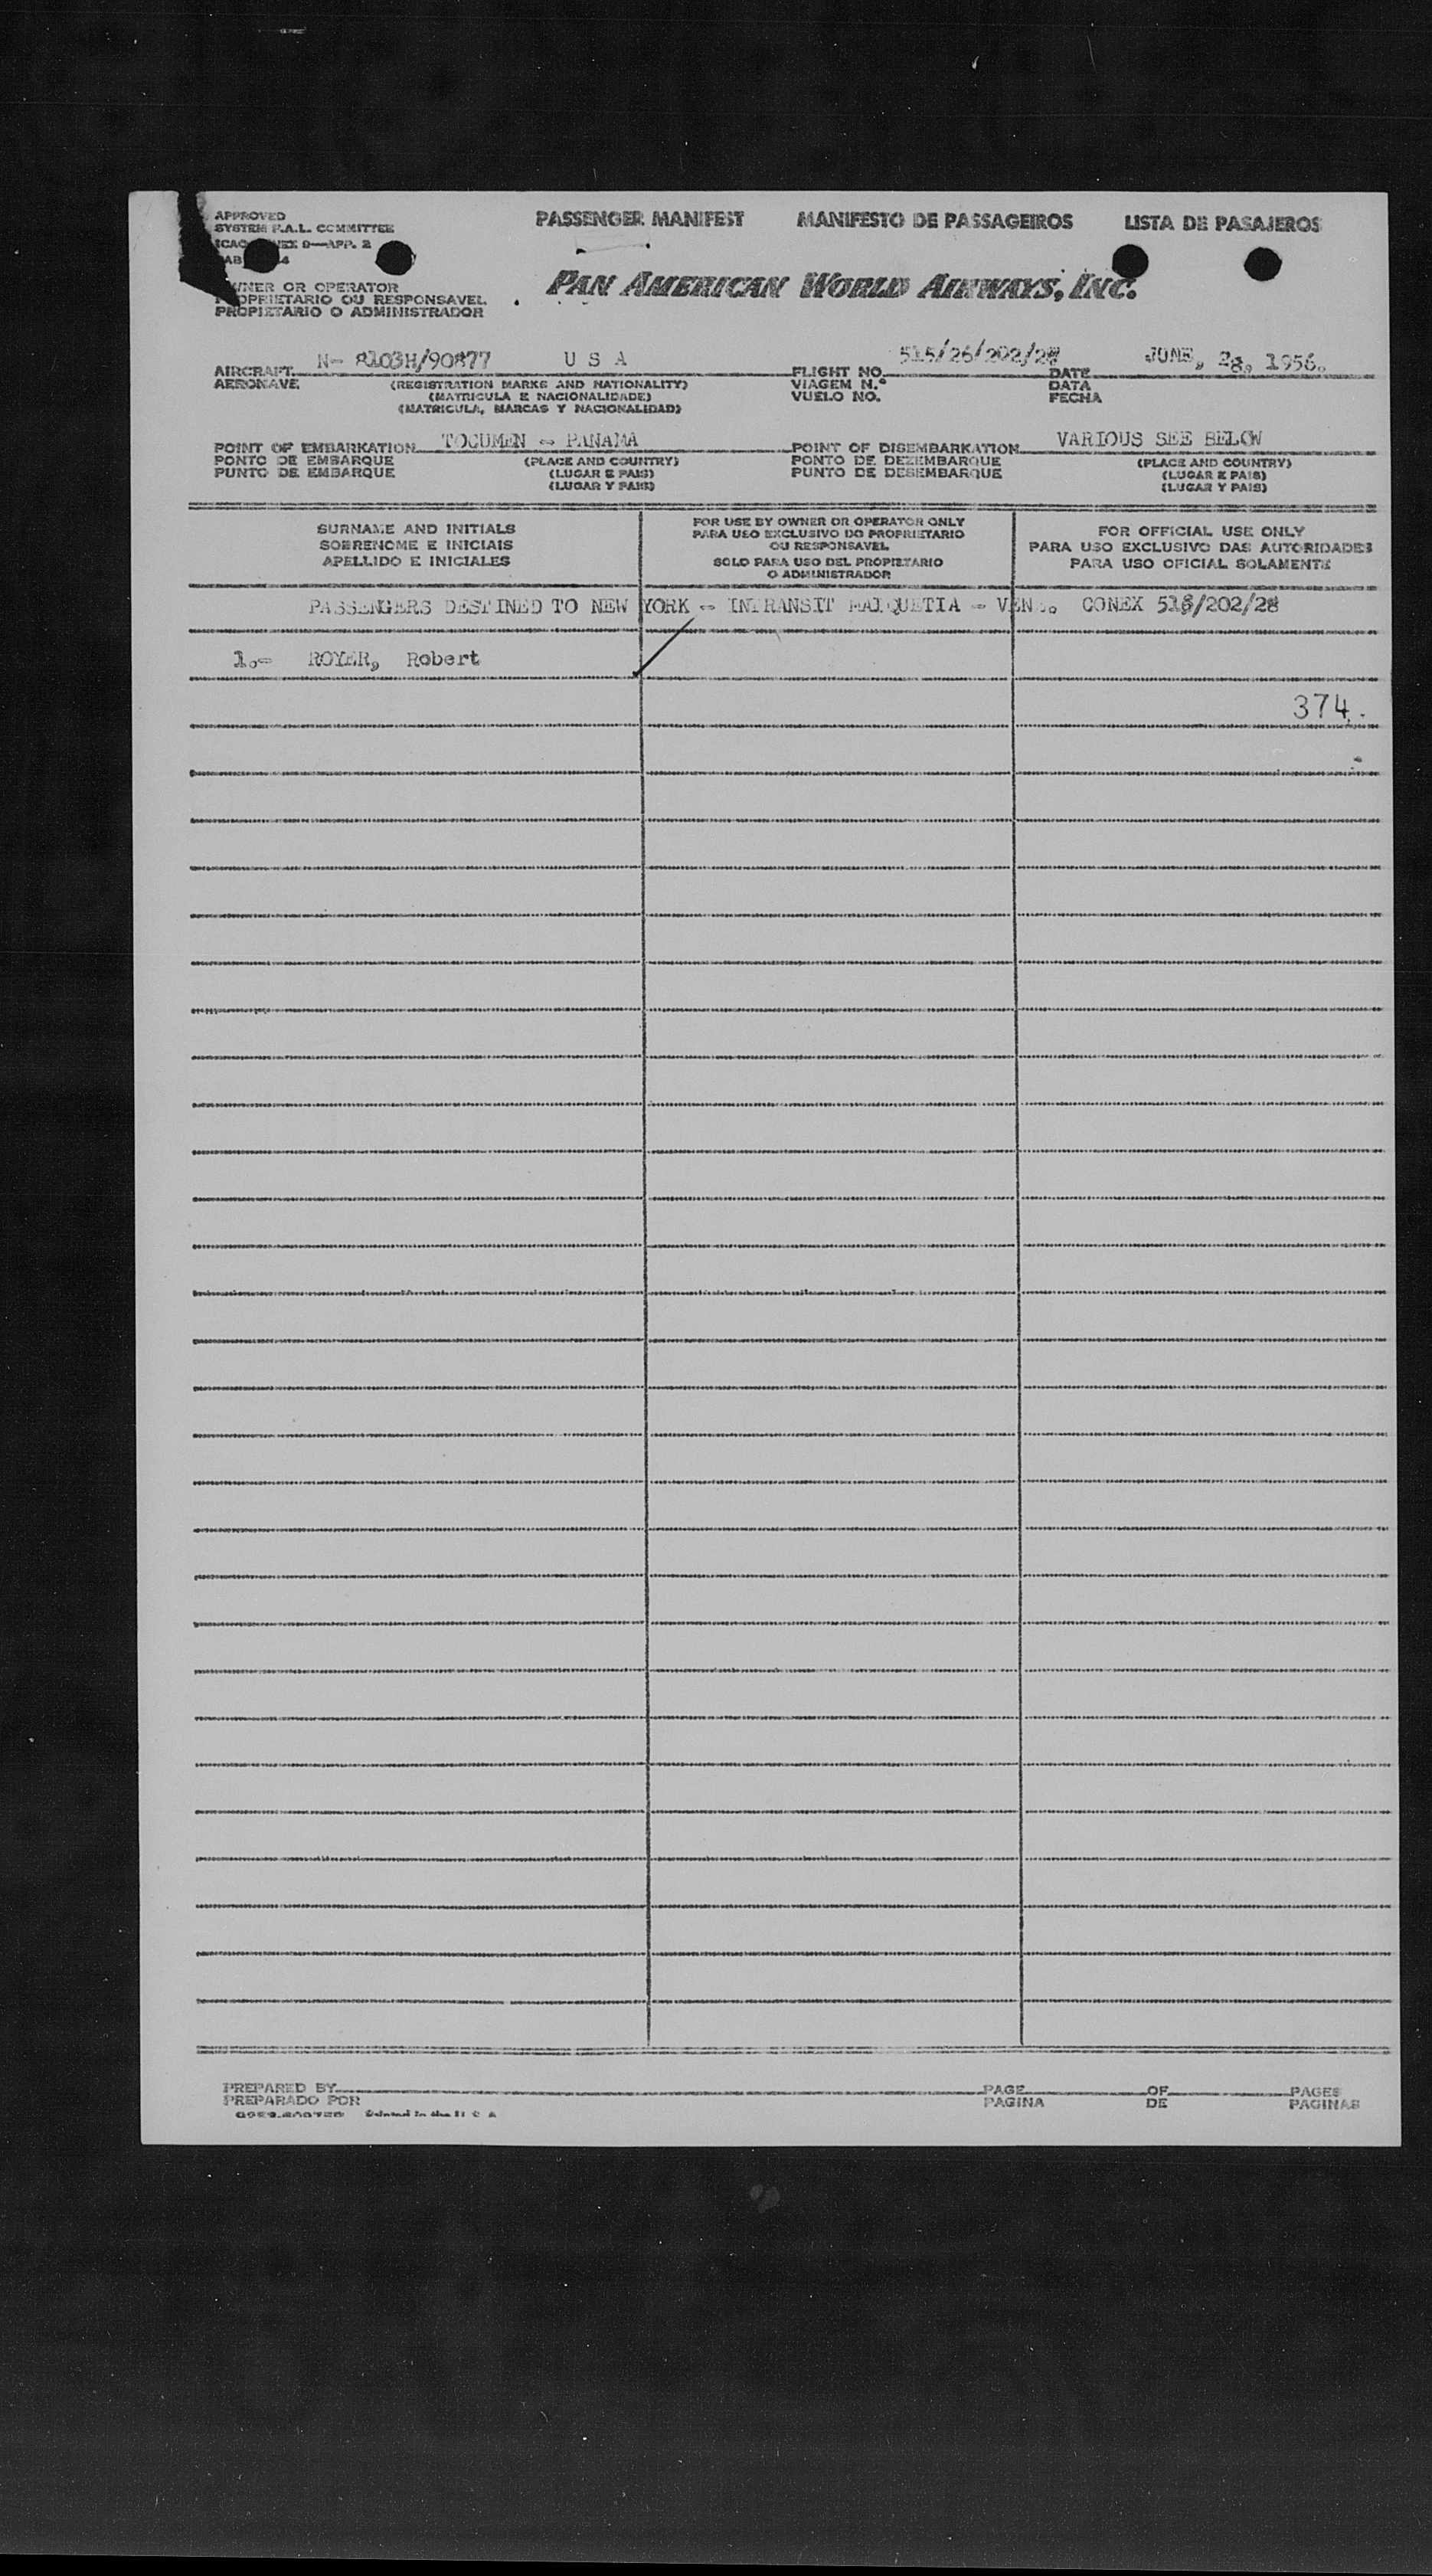 APPROVED
SYSTEM F.A.L. COMMITTEE
9—APP. 2
PASSENGER MANIFEST MANIFESTO DE PASSAGEIROS LISTA DE PASAJEROS
PAN AMERICAN WORLD AIRWAYS, INC.
OWNER OR OPERATOR
PROPRIETARIO OU RESPONSAVEL
PROPIETARIO O ADMINISTRADOR
N- 8103H/90877 U S A JUNE, 28, 1956.
AIRCRAFT FLIGHT NO. DATE
AERONAVE (REGISTRATION MARKS AND NATIONALITY) VIAGEM N.º DATA
(MATRICULA E NACIONALIDADE) VUELO NO. FECHA
(MATRICULA, MARCAS Y NACIONALIDAD)
TOCUMEN - PANAMA VARIOUS SEE BELOW
POINT OF EMBARKATION POINT OF DISEMBARKATION
PONTO DE EMBARQUE (PLACE AND COUNTRY) PONTO DE DEZEMBARQUE (PLACE AND COUNTRY)
PUNTO DE EMBARQUE (LUGAR E PAIS) PUNTO DE DESEMBARQUE (LUGAR E PAIS)
(LUGAR Y PAIS) (LUGAR Y PAIS)
SURNAME AND INITIALS
SOBRENOME E INICIAIS
APELLIDO E INICIALES
FOR USE BY OWNER OR OPERATOR ONLY
PARA USO EXCLUSIVO DO PROPRIETARIO
OU RESPONSAVEL
SOLO PARA USO DEL PROPIETARIO
O ADMINISTRADOR
FOR OFFICIAL USE ONLY
PARA USO EXCLUSIVO DAS AUTORIDADES
PARA USO OFICIAL SOLAMENTE
PASSENGERS DESTINED TO NEW YORK - INTRANSIT MAIQUETIA - VEN. CONEX
1.- ROYER, Robert
374.
PREPARED BY PAGE OF PAGES
PREPARADO POR PAGINA DE PAGINAS
Printed in the U S A